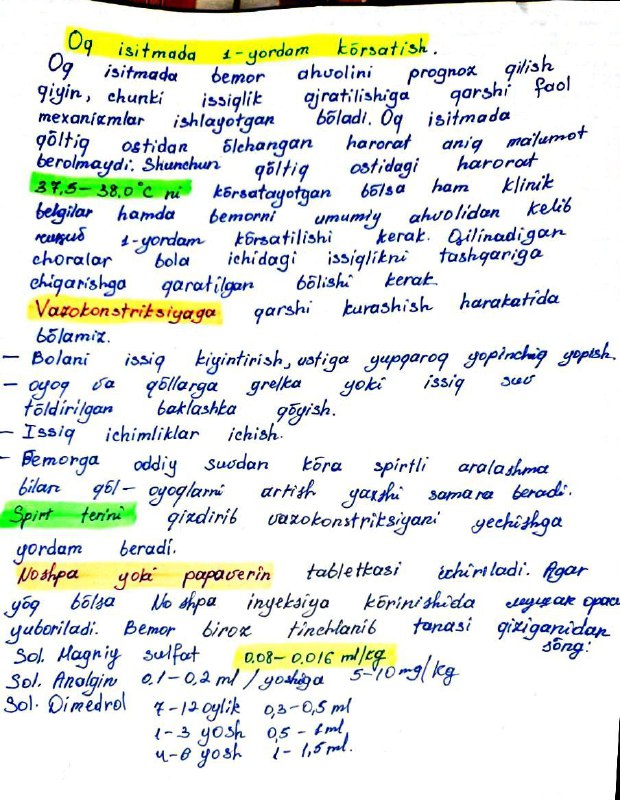 Oq isitmada 1-yordam kõrsatish.
Oq isitmada bemor ahvolini prognoz qilish
qiyin, chunki issiqlik ajratilishiga qarshi faol
mexanizmlar ishlayotgan bõladi. Oq isitmada
qõltiq ostidan õlchangan harorat aniq ma'lumot
berolmaydi. Shunchun qõltiq ostidagi harorat
37,5-38,0°C ni kõrsatayotgan bõlsa ham klinik
belgilar hamda bemorni umumiy ahvolidan kelib
1-yordam kõrsatilishi kerak. Qilinadigan
choralar bola ichidagi issiqlikni tashqariga
chiqarishga qaratilgan bõlishi kerak
Vazokonstriksiyaga qarshi kurashish harakatida
bõlamiz.
- Bolani issiq kiyintirish, ustiga yupqaroq yopinchiq yopish.
- oyoq va qõllarga grelka yoki issiq suv
tõldirilgan baklashka qõyish.
- Issiq ichimliklar ichish.
- Bemorga oddiy suvdan kõra spirtli aralashma
bilan qõl-oyoqlarni artish yaxshi samara beradi.
Spirt terini qizdirib vazokonstriksiyani yechishga
yordam beradi.
Noshpa yoki papaverin tabletkasi ichiriladi. Agar
yõq bõlsa No shpa inyeksiya kõrinishida мушак ораси
yuboriladi. Bemor biroz tinchlanib tanasi qiziganidan
sõng:
Sol. Magniy sulfat 0.08-0.016 ml/kg
Sol. Analgin 0.1-0.2 ml/yoshiga 5-10 mg/kg
Sol. Dimedrol 7-12 oylik 0,3-0,5 ml
1-3 yosh 0,5-1ml
4-6 yosh 1-1,5ml.